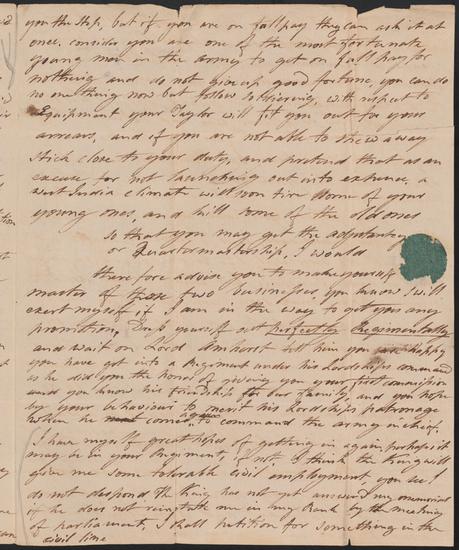 you the Step, but if you are on full pay they can ask it at
once. consider you are one of the most fortunate
young men in the army to get on full pay for
nothing and do not give up good fortune, you can do
no one thing now but follow with respect to
Equipment your Taylor will fit you out for your
arrears, and if you are not able to throw away
stick close to your duty, and pretend that as an
excuse for not launching out into expence, a
West India climate will soon tire some of your
young ones, and kill some of the old ones
so that you may get the adjutantcy
or Quartermastership, I would
therefore advise you to make yourself
master of those two businesses, you know I will
exert myself if I am in the way to get you any
promotion, Dress yourself out perfectly Regimentally
and wait on Lord Amherst tell him you are happy
you have got into a Regiment under his Lordships command
as he did you the honor of giving you your first commission
and you know his friendship for our family, and you hope
by your behaviour to merit his Lordships patronage
when he comes again to command the army in chief,
I have myself great hopes of getting in again, perhaps it
may be in your Regiment, if not, I think the King will
give me some tolerable civil employment you see I
do not despond the King has not yet answered my memorial
if he does not reinstate me in my Rank by the meeting
of parliament, I shall petition for something in the
civil line